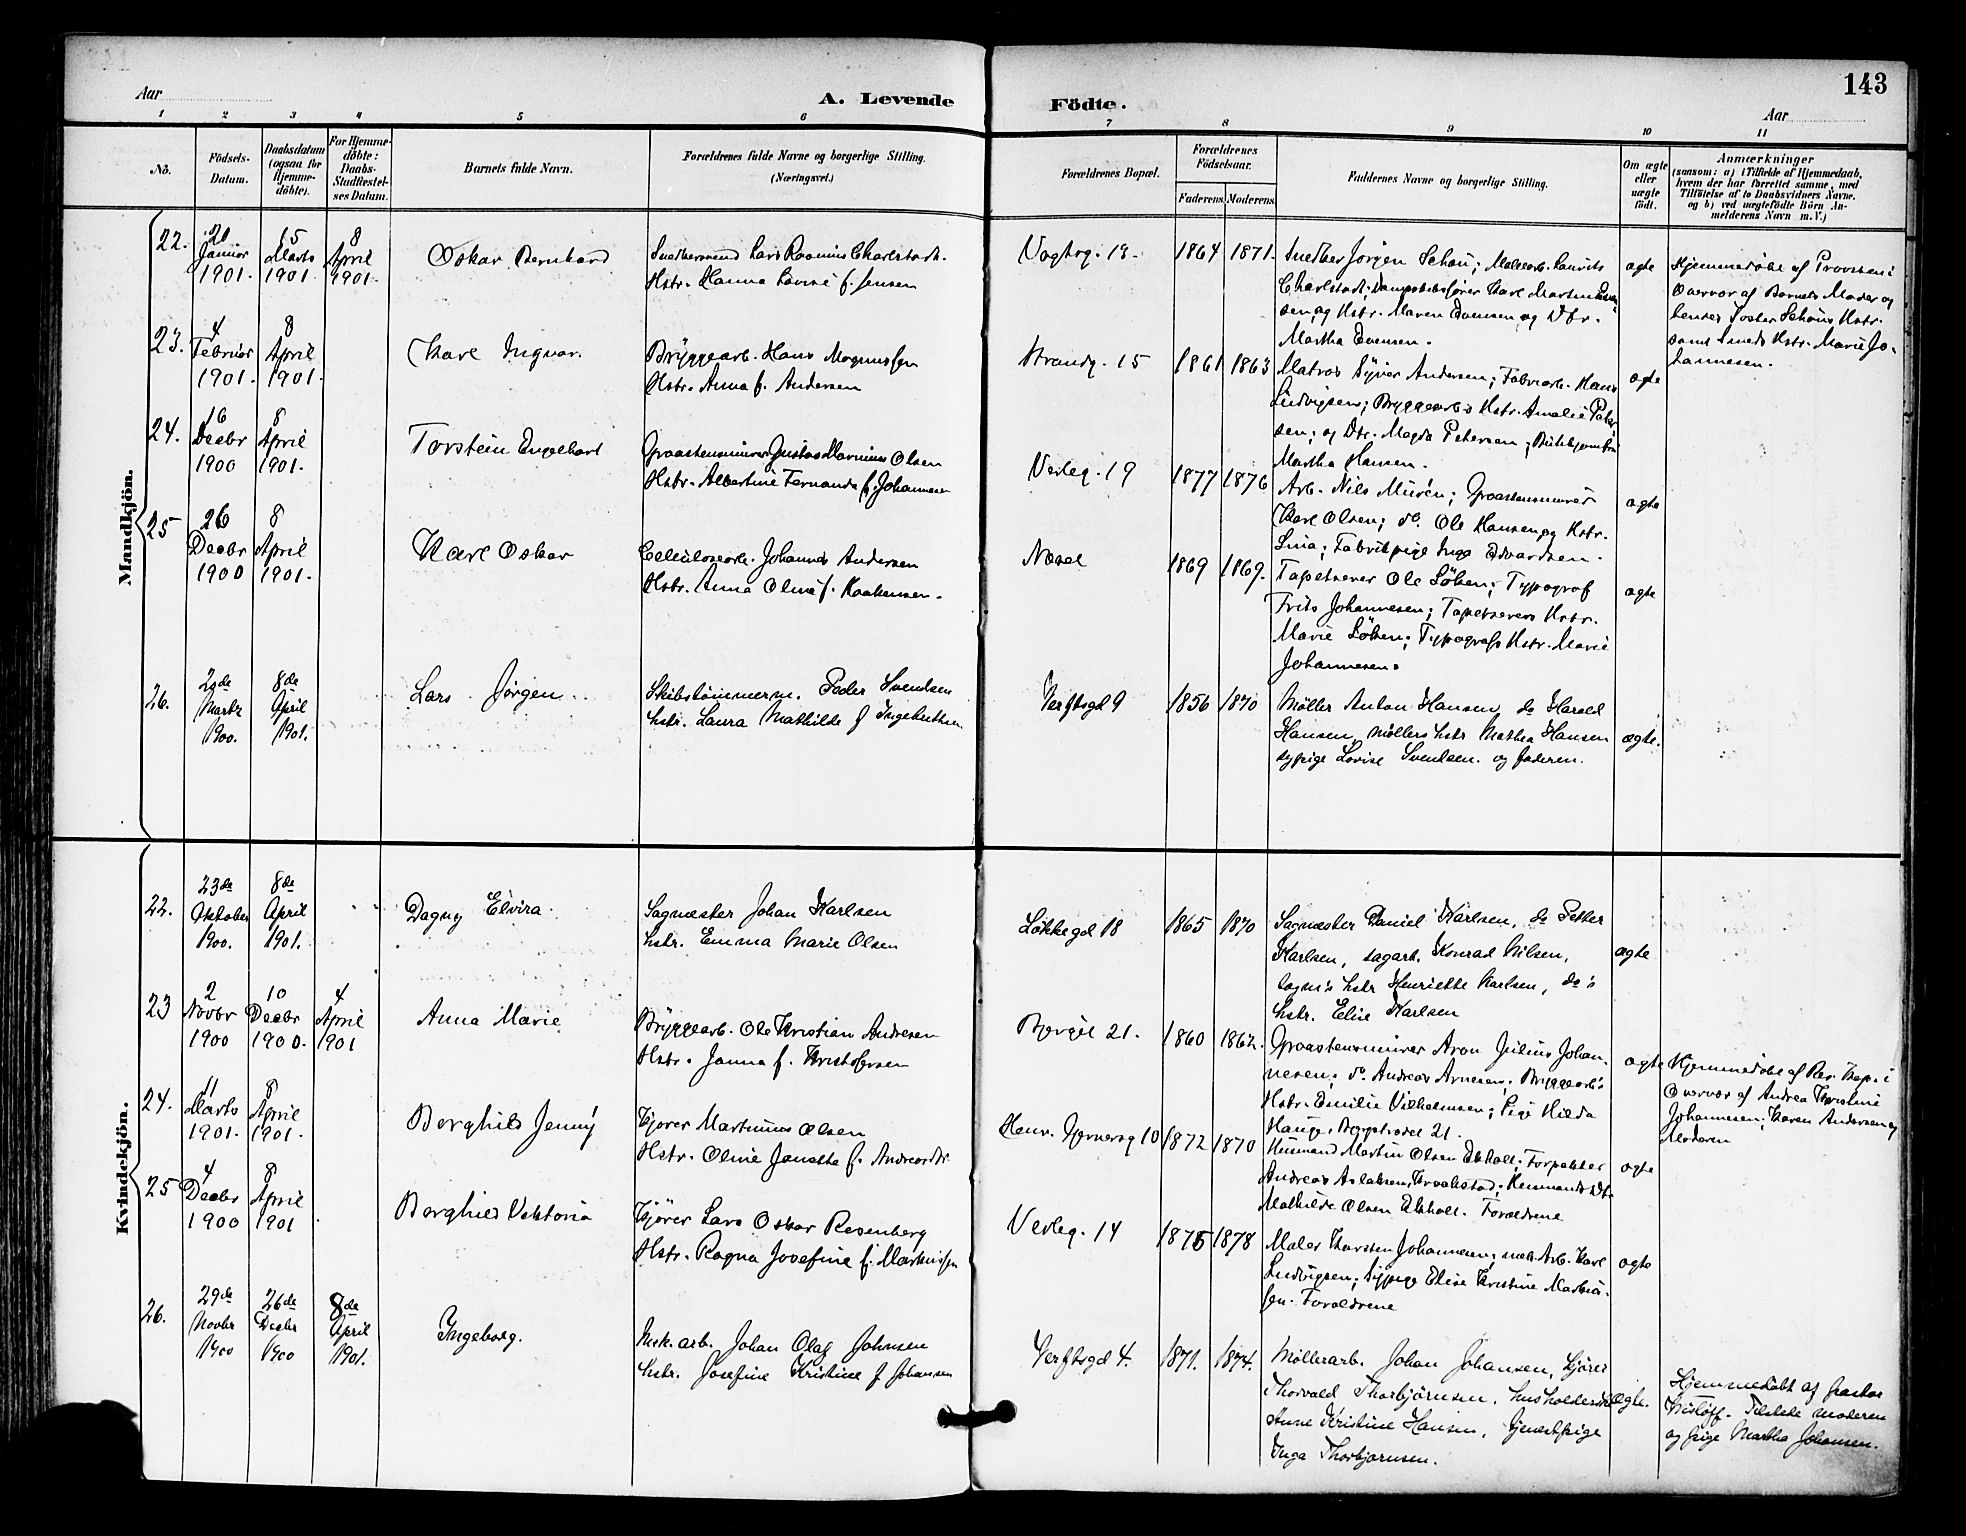 143
Aar
A. Levende
Födte.
Aar
1 2 3 4 5 6 7 8 9 10 11
No.
Födsels-
Datum.
Daabsdatum
(ogsaa for
Hjemme-
døbte).
For Hjemme-
døbte:
Daabs-
Stadfæstel-
ses Datum.
Barnets fulde Navn.
Forældrenes fulde Navne og borgerlige Stilling.
(Næringsvei.)
Forældrenes Bopæl.
Forældrenes
Fødselsaar.
Faderens. Moderens.
Faddernes Navne og borgerlige Stilling.
Om ægte
eller
uægte
født.
Anmærkninger
(saasom: a) i Tilfælde af Hjemmedaab,
hvem der har forrettet samme, med
Tilføielse af to Daabsvidners Navne.
og b) ved uægtefødte Börn An-
melderens Navn m. V.)
Mandkjön.
22.
Januar
1901.
15
Marts
1901.
8
April
1901.
Oskar Bernhard
Lars Rasmus Charlstadt.
Hstr. Hanna Lovise f. Jensen
Vogtsg. 18.
1864 1871.
Snedker Jørgen Schou; Malerarb. Laurits
Charlstadt; Karl Martin
sen og Hstr. Maren Evensen og Dtr.
Martha Evensen.
ægte
Hjemmedøbt af Provsten i
Overvær af Barnets Moder og
Schous Hstr.
samt Smeds Hstr. Marie Jo-
hannesen.
23.
4
Februar
1901.
8
April
1901.
Karl Ingvar.
Bryggearb. Hans Magnussen
Hstr. Anna f. Andersen
Strandg. 15
1861 1863
Matros Syver Andersen; Fabriarb. Hans
Ludvigsen; Bryggearbs Hstr. Amalie Peter
sen; og Dtr. Magda Petersen;
Martha Hansen.
ægte
24.
16
Decbr
1900
8
April
1901.
Torstein Engelhart
Graastensmurer Gustav Marinius Olsen
Hstr. Albertine Fernanda f. Johannesen
Verleg. 19
1877 1876
Arb. Nils Murén; Graastensmurer
Karl Olsen; do. Ole Hansen og Hstr.
Lina; Fabrikpige Inga Edvardsen.
ægte
25
26
Decbr
1900
8
April
1901.
Karl Oskar
Celluloseark. Johannes Andersen
Hstr. Anna Oline f. Haakensen.
1869 1869.
Tapetserer Ole Löken; Typograf
Frits Johannesen; Tapetserers Hstr.
Marie Löken; Typografs Hstr. Marie
Johannesen.
ægte
26.
Marts
1900.
8de
April
1901.
Lars Jørgen
Skibstømmerm. Peder Svendsen
hstr. Laura Mathilde f Ingebretsen
Verftsgd 9
1856 1870
Møller Anton Hansen, do Harald
Hansen, møllers hstr Mathea Hansen
sypige Lovise Svendsen. og faderen.
ægte.
Kvindekjön.
22.
23de
Oktober
1900.
8de
April
1901.
Dagny Elvira.
Sagmester Johan Karlsen
hstr. Emma Marie Olsen
Løkkegd 18
1865 1870
Sagmester Daniel Karlsen, do Petter
Karlsen, sagarb. Konrad Nilsen,
sagm's hstr Henriette Karlsen, do's
hstr. Elise Karlsen
ægte
23
2
Novbr
1900
10
Decbr
1900.
4
April
1901
Anna Marie
Bryggearb. Ole Kristian Andresen
Hstr. Janna f. Kristofersen
21.
1860 1862.
Graastensmurer Aron Julius Johan-
nesen; do. Andreas Arnesen; Bryggearb's
Hstr. Emilie Vilhelmsen; Pige Hilda
Hauge. 21.
ægte
Hjemmedøbt af i
Overvær af Andrea Kristine
Johannesen; Karen Andersen og
Moderen
24.
11
Marts
1901.
8
April
1901.
Borghild Jenny
Kjører Martinius Olsen
Hstr. Oline Janette f. Andreasdtr.
Henr. Gernersg 10
1872 1870
Husmand Martin Olsen Ekholt; Forpakter
Andreas Aslaksen, Kraakstad; Husmands Dtr.
Mathilde Olsen Ekholt. Forældrene
ægte
25
4
Decbr
1900
8
April
1901
Borghild Viktoria
Kjører Lars Oskar Rosenberg
Hstr. Ragna Josefine f. Markussen
Verleg. 14
1875 1878
Maler Karsten Johannesen; Arb. Karl
Ludvigsen; Sypige Elise Kristine Markus-
sen. Forældrene
ægte
26.
29de
Novbr
1900
26de
Decbr
1900
8de
April
1901.
Ingeborg.
Mek. arb. Johan Olaf Johnsen
hstr. Josefine Kristine f Johansen
Verftsgd 4.
1871. 1874.
Møllerarb. Johan Johansen, kjører
Thorvald Thorbjørnsen, husholderske
Anne Kristine Hansen, tjenestpige
Inga Thorbjørnsen.
ægte.
Hjemmedøbt af pastor
Tilstede moderen
og pige Martha Johansen.